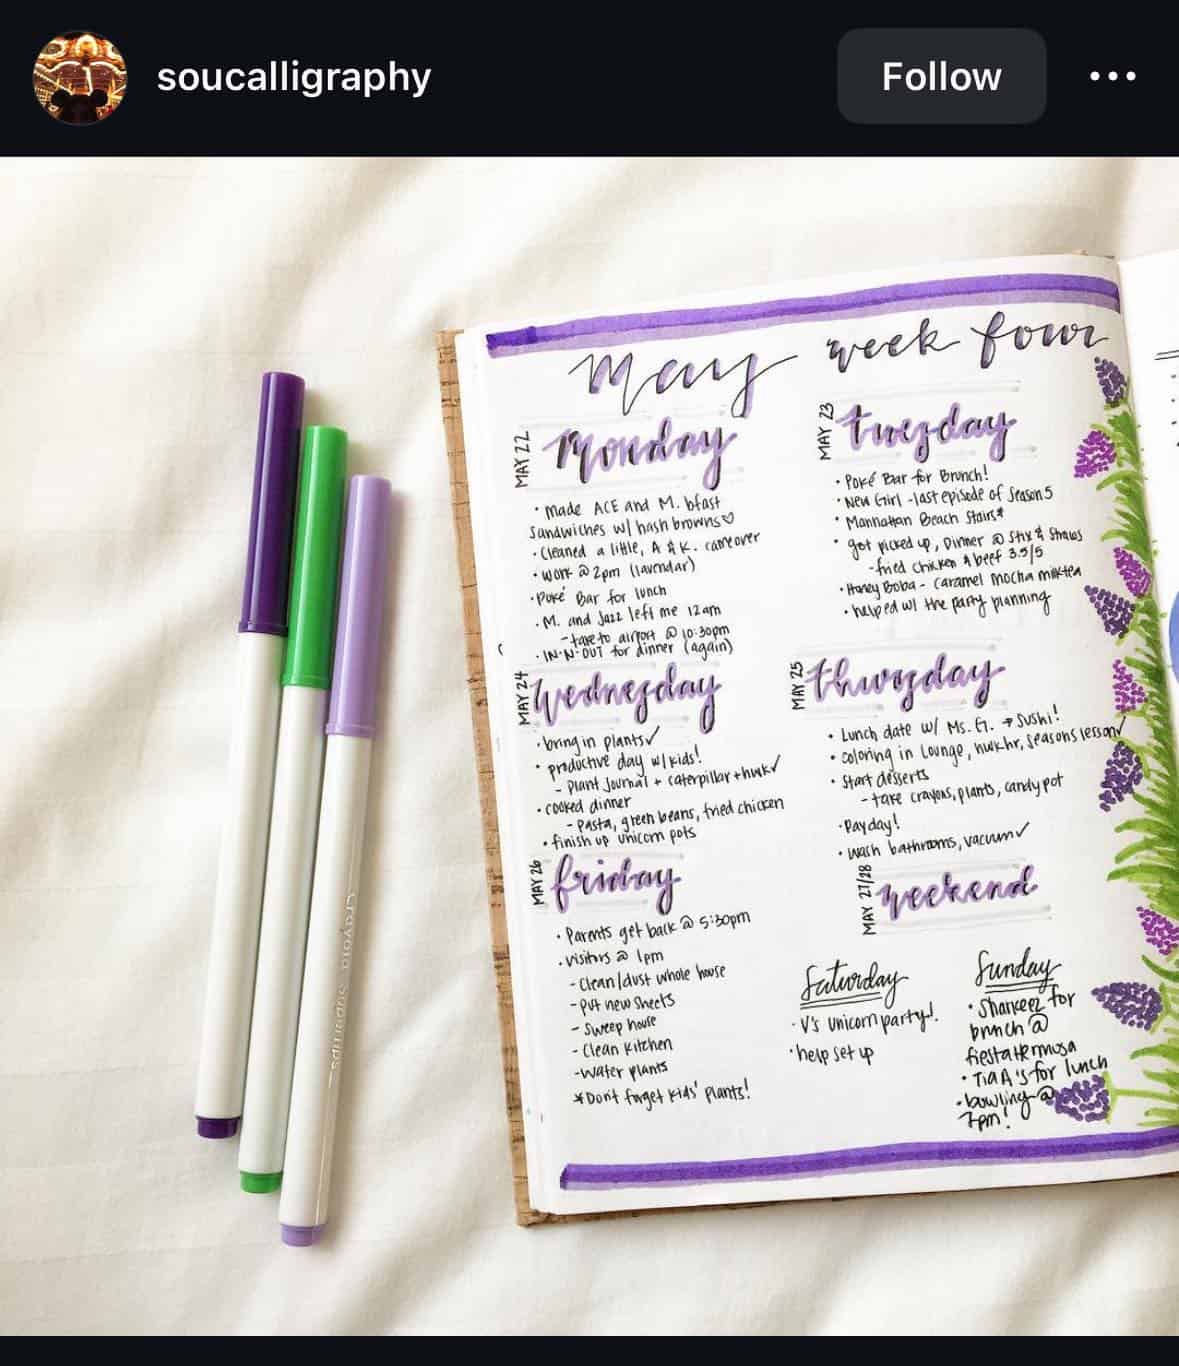 soucalligraphy
Follow
may week four
MAY 22
monday
• made ACE and M. bfast
sandwiches w/ hash browns♡
• cleaned a little, A & K. came over
• work @ 2pm (lavendar)
• Poké Bar for lunch
• M. and Jazz left me 12am
- take to airport @ 10:30pm
• IN·N·OUT for dinner (again)
MAY 23
tuesday
• Poké Bar for Brunch!
• New Girl - last episode of Season 5
• Manhattan Beach Stairs*
• got picked up, Dinner @ Stix & Straws
- fried chicken & beef 3.5/5
• Honey Boba - caramel mocha milktea
• helped w/ the party planning
MAY 24
wednesday
• bring in plants✓
• productive day w/ kids!
- Plant Journal + caterpillar + hwk✓
• cooked dinner
- Pasta, green beans, fried chicken
• finish up unicorn pots
MAY 25
thursday
• Lunch date w/ Ms. G. → sushi!
• coloring in lounge, hwk hr, seasons lesson✓
• Start desserts
- take crayons, plants, candy pot
• Payday!
• wash bathrooms, vacuum✓
MAY 26
friday
• Parents get back @ 5:30pm
• visitors @ 1pm
- Clean/dust whole house
- Put new sheets
- Sweep house
- Clean kitchen
- Water plants
* Don't forget kids' plants!
MAY 27/28
weekend
Saturday
• V's unicorn party!
• help set up
Sunday
• Sharkeez for
brunch @
fiesta Hermosa
• Tia A's for lunch
• bowling @
7pm!
Crayola SuperTips